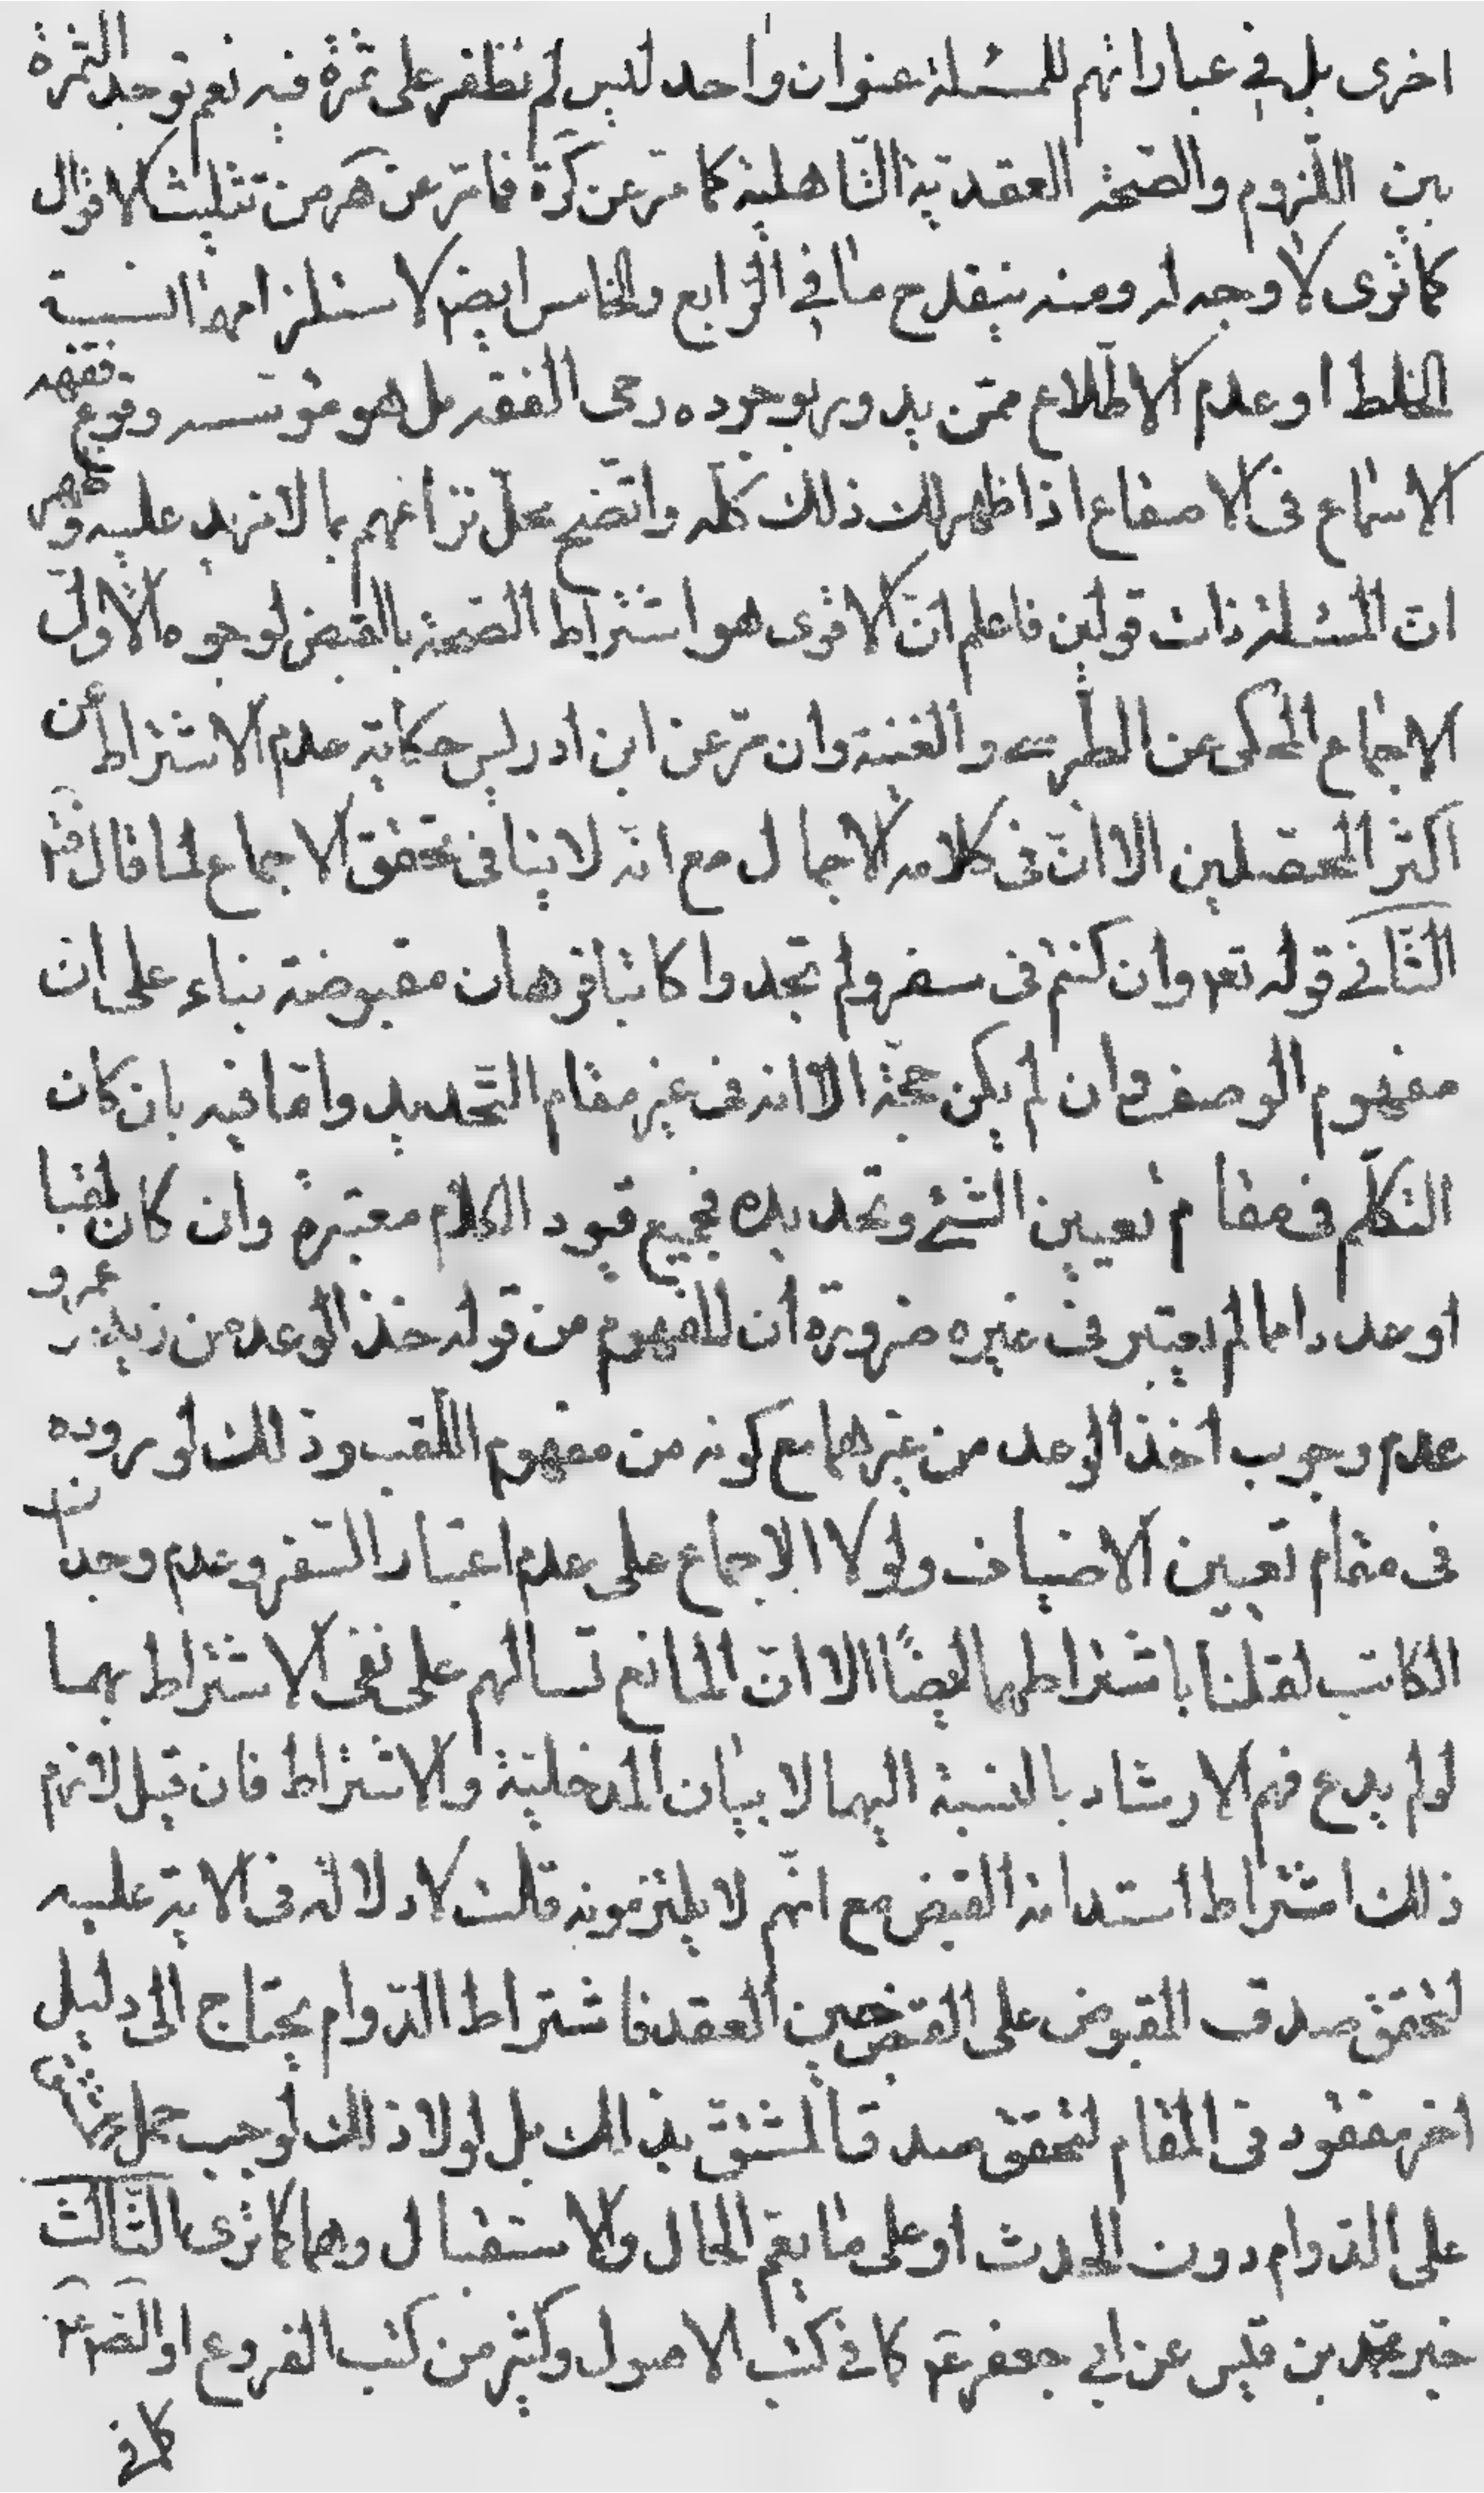 اخرى بل في عباراتهم للمسئلة عنوان واحد ليس لم نظفر على ثمرة فيه نعم توجد الثمرة
بين اللزوم والصحة العقدية التاهلية كما مر عن كرة فما مر عن هر من تثليث الاقوال
كما ترى لا وجه له ومنه ينقدح ما في الرابع والخامس ايضا لاستلزامهما النسبة
الخلط او عدم الاطلاع ممن يدور بوجوده رحى الفقه بل هو مؤسسه وقوع فقهه
الاسماع في الاصقاع اذا ظهر لك ذلك كله واتضح محل نزاعهم بما لا مزيد عليه وظهر
ان المسئلة ذات قولين فاعلم ان الاقوى هو اشتراط الصحة بالقبض لوجوه الاول
الاجماع المحكى عن الطبرسي والغنية وان مر عن ابن ادريس حكاية عدم الاشتراط عن
اكثر المحصلين الا ان في كلامه الاجمال مع انه لا ينافى تحقق الاجماع لما قال فتر
الثاني قوله تعم وان كنتم في سفر ولم تجدوا كاتبا فرهان مقبوضة بناء على ان
مفهوم الوصف وان لم يكن حجة الا انه في غير مقام التحديد واما فيه بان كان
التكلم في مقام تعيين الشئ وتحديده فجميع قيود الكلام معتبرة وان كان لقبا
او عددا ما لم يعتبر في غيره ضرورة ان المفهوم من قوله خذ الوعد من زيد وعمرو
عدم وجوب اخذ الوعد من غيرهما مع كونه من مفهوم اللقب وذلك لوروده
في مقام تعيين الاضياف ولولا الاجماع على عدم اعتبار السفر وعدم وجدان
الكاتب لقلنا باشتراطهما ايضًا الا ان المانع تسالمهم على نفى الاشتراط بهما
لو لم يدع فهم الارشاد بالنسبة اليهما لا بيان المدخلية والاشتراط فان قيل لازم
ذلك اشتراط استدامة القبض مع انهم لا يلتزمونه قلت لا دلالة في الاية عليه
لتحقق صدق المقبوض على القبض حين العقد فاشتراط الدوام يحتاج الى دليل
اخر مفقود في المقام لتحقق صدق المشتق بذلك بل لولا ذلك لوجب حمل
على الدوام دون الحدث او على ما يعم الحال والاستقبال وهما كما ترى الثالث
خبر محمد بن قيس عن ابي جعفر ع كما في كتب الاصول وكثير من كتب الفروع او
كما في